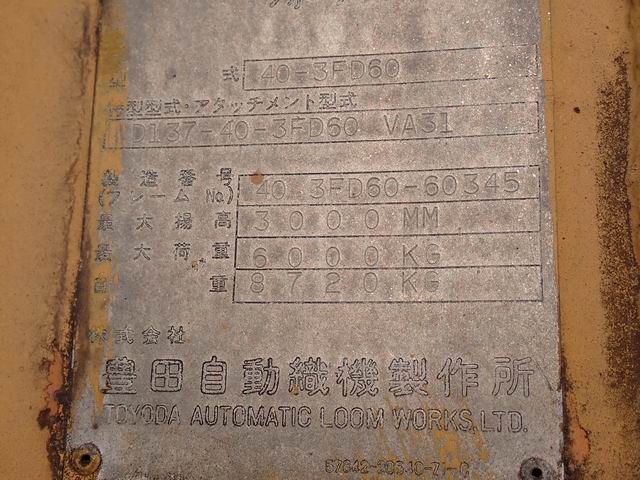 式 40-3FD60
型型式・アタッチメント型式
D137-40-3FD60 VA31
製造番号
(フレームNo.) 40-3FD60-60345
最大揚高 3000MM
最大荷重 6000KG
重 8720KG
株式会社
豊田自動織機製作所
TOYODA AUTOMATIC LOOM WORKS, LTD.